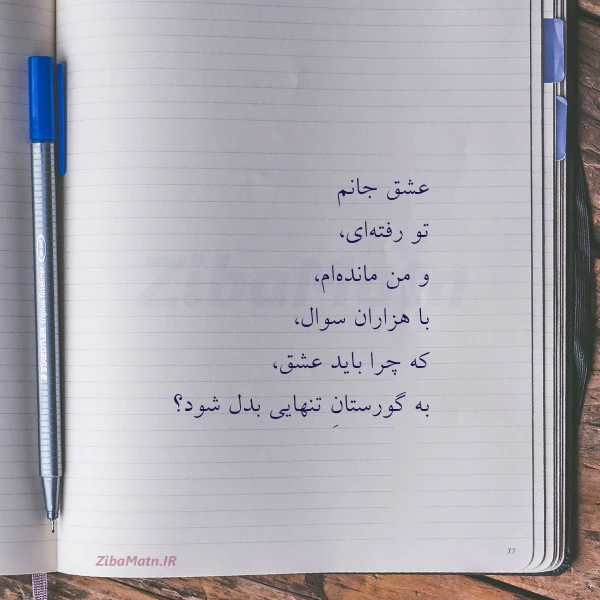 عشق جانم
تو رفته‌ای،
و من مانده‌ام،
با هزاران سوال،
که چرا باید عشق،
به گورستانِ تنهایی بدل شود؟
ZibaMatn
ZibaMatn.IR